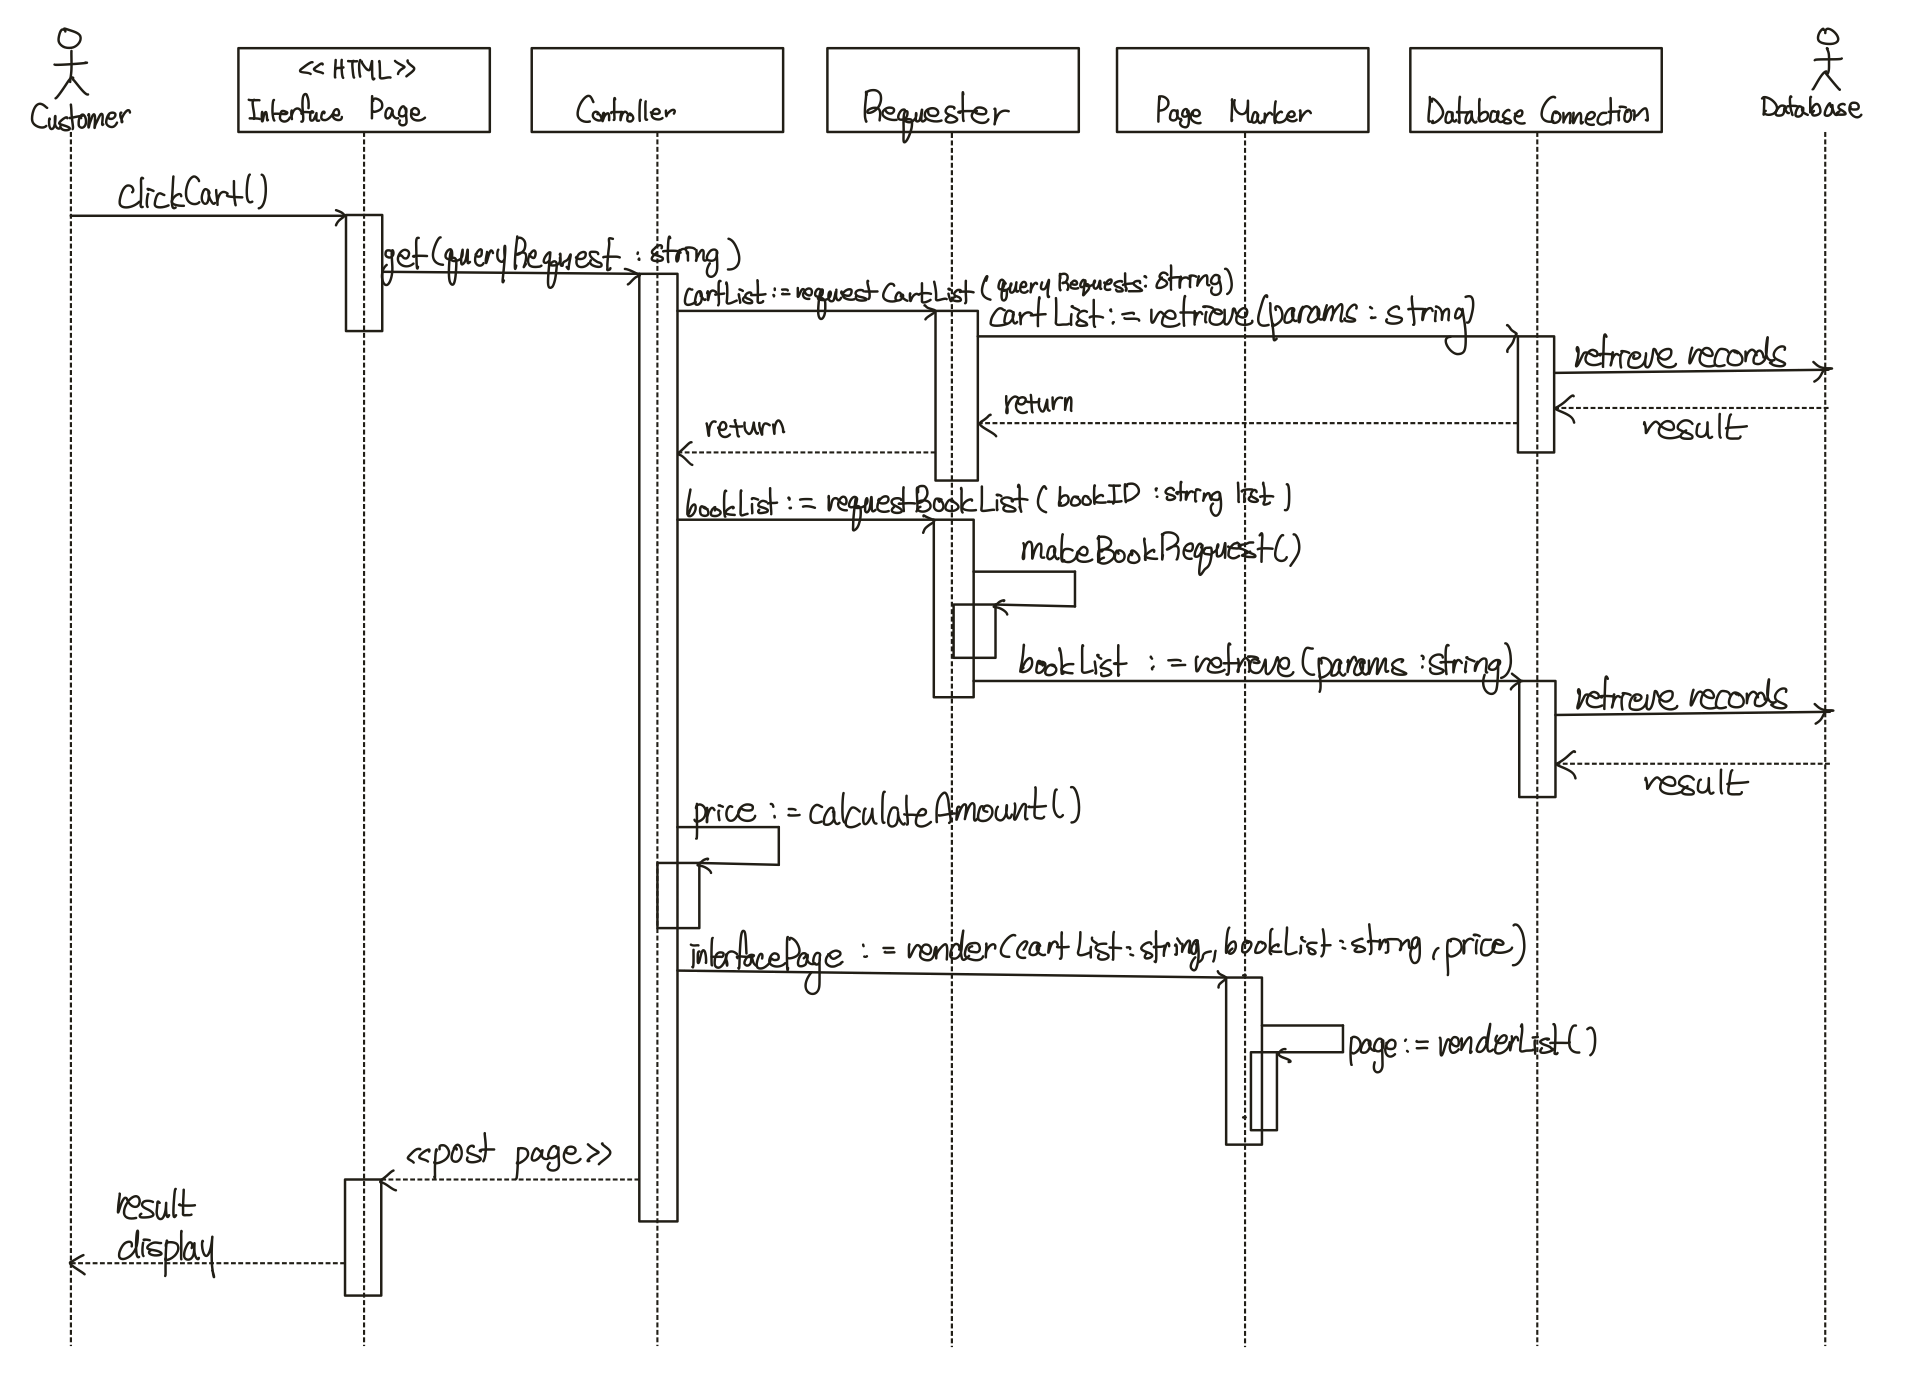 Customer
<< HTML >>
Interface Page
Controller
Requester
Page Marker
Database Connection
Database
clickCart()
get(queryRequest : string)
cartList := requestCartList (queryRequests: string)
cartList := retrieve(params : string)
retrieve records
result
return
return
bookList := requestBookList ( bookID : string list )
makeBookRequest()
bookList := retrieve (params : string)
retrieve records
result
price := calculateAmount()
interfacePage := render(cartList : string, bookList : string, price)
page := renderList()
<<post page>>
result
display